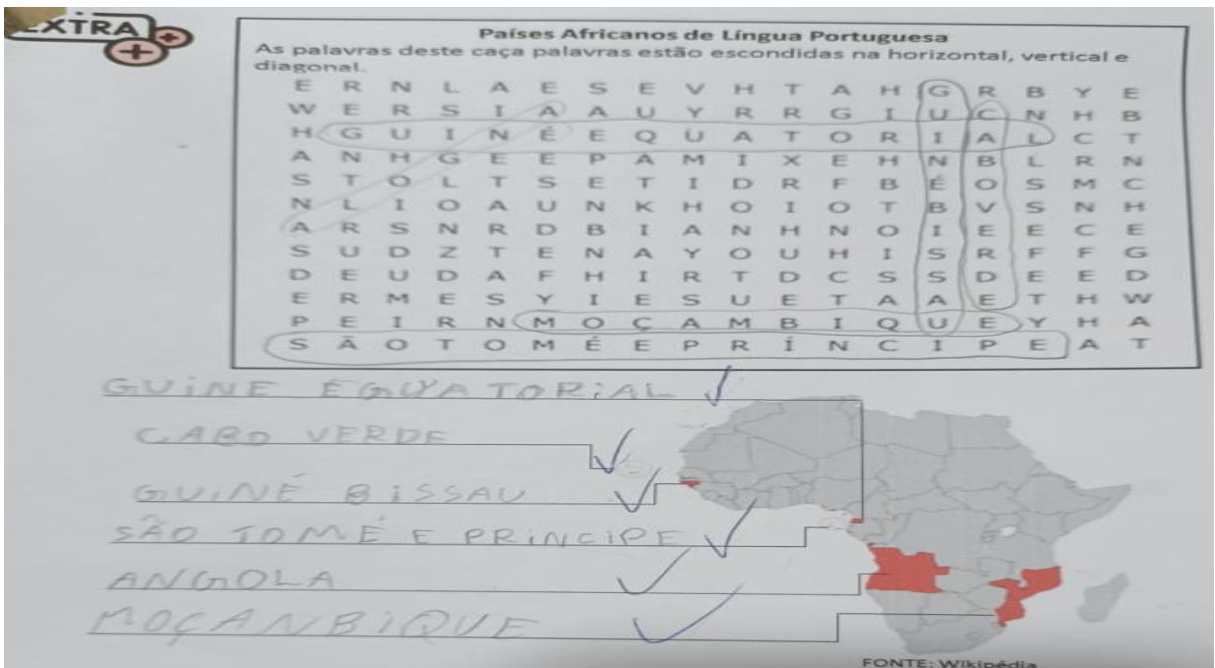 EXTRA
Países Africanos de Língua Portuguesa
As palavras deste caça palavras estão escondidas na horizontal, vertical e
diagonal.
E R N L A E S E V H T A H G R B Y E
W E R S I A A U Y R R G I U C N H B
H G U I N É E Q U A T O R I A L C T
A N H G E E P A M I X E H N B L R N
S T O L T S E T I D R F B É O S M C
N L I O A U N K H O I O T B V S N H
A R S N R D B I A N H N O I E E C E
S U D Z T E N A Y O U H I S R F F G
D E U D A F H I R T D C S S D E E D
E R M E S Y I E S U E T A A E T H W
P E I R N M O Ç A M B I Q U E Y H A
S Ã O T O M É E P R Í N C I P E A T
GUINE EQUATORIAL
CABO VERDE
GUINÉ BISSAU
SÃO TOMÉ E PRINCIPE
ANGOLA
MOÇANBIQUE
FONTE: Wikipédia